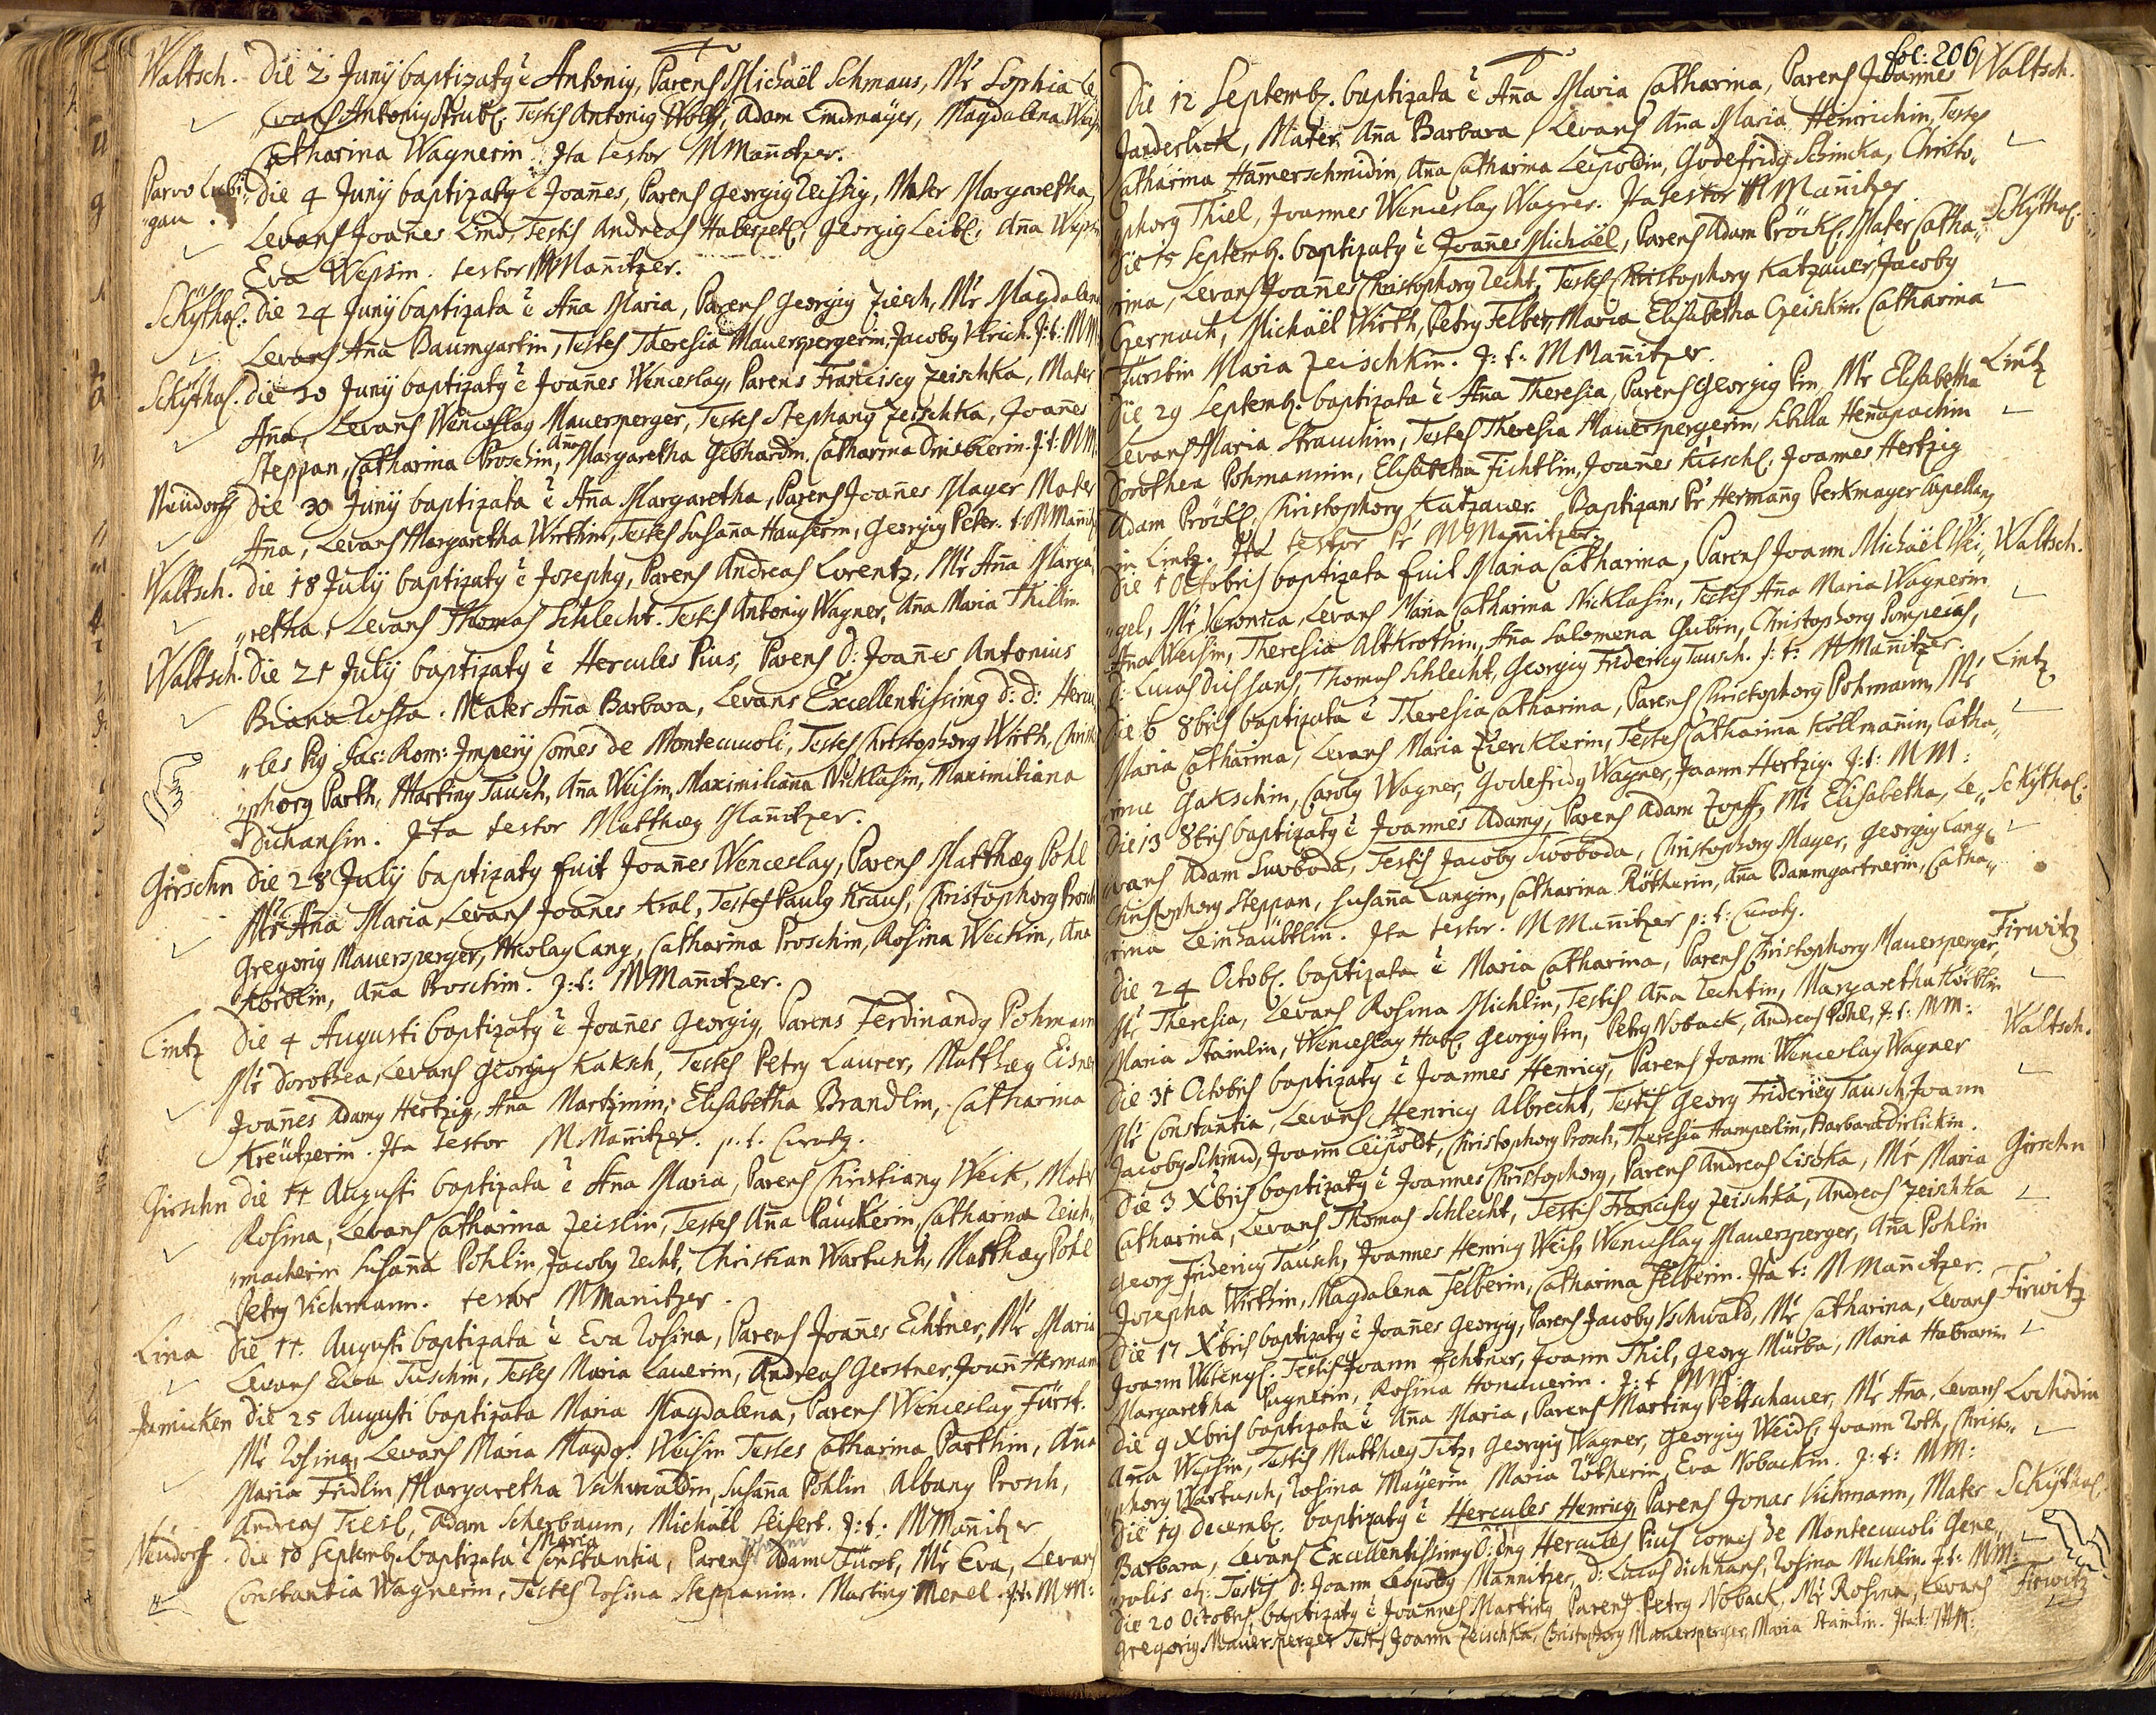 Waltsch. Die 2 Junÿ baptizatq ē Antoniq, Parens Michaël Schmaus, Mr Sophia Le„
vans Antoniq Strubl: Testis Antoniq Wolff, Adam Lindmaÿer, Magdalena
Catharina Wagnerin. Ita testor MMañitzer.
Parvo Lubi„ Die 4 Junÿ baptizatq ē Joañes, Parens Georgiq Zeissig, Mater Margaretha
„gau. Levans Joañes Lind, Testis Andreas Haberzetl, Georgiq Leibl, Aña
Eva Wepsin. testor MMañitzer.
Skÿthal: Die 24 Junÿ baptizata ē Aña Maria, Parens Georgiq Ziech, Mr Magdalena
Levans Aña Baumgartin, Testes Theresia Mauerspergerin, Jacobq Ulrich. J: t: MM
Skÿthal. Die 20 Junÿ baptizatq ē Joañes Wenceslaq, Parens Franciscq Zeischka, Mater
Aña, Levans Wenceslaq Mauersperger, Testes Stephanq Zeischka, Joañes
Steppan, Catharina Proschin, Aña Margaretha Gebhardin. Catharina Drisblerin. J: t: MM:
Neüdorff Die 30 Junÿ baptizata ē Aña Margaretha, Parens Joañes Mayer Mater
Aña, Levans Margaretha Wirthin, Testes Susaña Hauserin, Georgiq Peter. t: MMañitz
Waltsch. Die 18 Julÿ baptizatq ē Josephq, Parens Andreas Lorentz, Mr Aña Marga„
„retha, Levans Thomas Schlecht. Testis Antoniq Wagner, Aña Maria Thillin.
Waltsch. Die 21 Julÿ baptizatq ē Hercules Pius, Parens D: Joañes Antonius
Biana Rossa. Mater Aña Barbara, Levans Excellentissimq D: D: Hercu„
„les Piq Sac: Rom: Imperÿ Comes de Montecucoli, Testes Christophorq Wirth, Christo
„phorq Parth, Martinq Tausch, Aña Weisin, Maximiliaña Nicklasin, Maximiliana
Dichansin. Ita testor Matthæq Mañitzer.
Girschn Die 28 Julÿ baptizatq fuit Joañes Wenceslaq, Parens Matthæq Pohl
Mr Aña Maria, Levans Joañes Kral, Testes Paulq Kraus, Christophorq Prosch
Gregoriq Mauersperger, Nicolaq Lang, Catharina Proschin, Rosina Weckin, Aña
Körblin, Aña Proschin. J: t: MMañitzer.
Lintz Die 4 Augusti baptizatq ē Joañes Georgiq, Parens Ferdinandq Pohmann
Mr Dorothea, Levans Georgiq Kaksch, Testes Petrq Laurer, Matthæq Eisner
Joañes Adamq Hertzig, Aña Martzinin, Elisabetha Brandlin, Catharina
Kreützerin. Ita testor MMañitzer. p: t: Curatq.
Girschn Die 11 Augusti baptizata ē Aña Maria, Parens Christianq Weik, Mater
Rosina, Levans Catharina Zeislin, Testes Aña Pauckerin, Catharina Zeich„
„macherin Susaña Pohlin, Jacobq Zecht, Christian Wartusch, Matthæq Pohl
Petrq Vichmann. testor MMañitzer.
Lina Die 11. Augusti baptizata ē Eva Rosina, Parens Joañes Echtner, Mr Maria
Levans Eva Tuschin, Testes Maria Lauerin, Andreas Gerstner, Joañ Hermann
Jamicken Die 25 Augusti baptizata Maria Magdalena, Parens Wenceslaq Fürst.
Mr Rosina, Levans Maria Magd: Weisin Testes Catharina Parthin, Aña
Maria Fridlin, Margaretha Uschwaldin, Susaña Pohlin Albanq Prosch,
Andreas Tiesl, Adam Scherbaum, Michaël Seifert. J: t: MMañitzer
Neüdorf. Die 10 Septemb: baptizata ē Maria Constantia, Parens Adam Fürst, Mr Eva, Levans
Constantia Wagnerin, Testes Rosina Steppanin. Martinq Menel. J: t: MM:
fol: 206
Die 12 Septemb. baptizata ē Aña Maria Catharina, Parens Joannes Waltsch.
Janderlick, Mater Aña Barbara, Levans Aña Maria Heinrichin, Testes
Catharina Hamerschmidin, Aña Catharina Leipoldin, Godefridq Schincka, Christo„
„phorq Thiel, Joannes Wenceslaq Wagner. Ita testor MMañitzer
Die 15 Septemb. baptizatq ē Joañes Michaël, Parens Adam Pröckl, Mater Catha„ Skÿthal:
rina, Levans Joañes Christophorq Zecht, Testes Christophorq Katzauer, Jacobq
Czernoch, Michaël Wirth, Petrq Felber, Maria Elisabetha Czeischkin. Catharina
Fürstin Maria Zeischkin. J: t: MMañitzer.
Die 29 Septemb. baptizata ē Aña Theresia, Parens Georgiq Pin, Mr Elisabetha Lintz
Levans Maria Strauchin, Testes Theresia Mauerspergerin, Sibilla Heñapachin
Dorothea Pohmannin, Elisabetha Fichtlin, Joañes Kieschl: Joannes Hertzig
Adam Pröckl, Christophorq Katzauer. Baptizans Pr Hermanq Perkmayer Capellanq
in Lintz. Ita testor Pr MMañitzer.
Die 1 Octobris baptizata fuit Maria Catharina, Parens Joann Michaël Wei„ Waltsch.
„gel, Mr Veronica, Levans Maria Catharina Nicklasin, Testes Aña Maria Wagnerin
Aña Weisin, Theresia Altkrothin, Aña Salomena Gubin, Christophorq Pompeias,
D: Lucas Dichhans, Thomas Schlecht, Georgiq Fridericq Tausch. J: t: MMañitzer.
Die 6 8bris baptizata ē Theresia Catharina, Parens Christophorq Pohmann, Mr Lintz
Maria Catharina, Levans Maria Zircklerin, Testes Catharina Kollmañin, Catha„
rina Gakschin, Carolq Wagner, Godefridq Wagner, Joann Hertzig. J: t: MM:
Die 13 8bris baptizatq ē Joannes Adamq, Parens Adam Zonff, Mr Elisabetha, Le„ Skÿthal:
vans Adam Swoboda, Testis Jacobq Swoboda, Christophorq Mayer, Georgiq Lang
Christophorq Steppan, Susaña Langin, Catharina Rötherin, Aña Baumgartnerin, Catha„
rina Leinhäubtlin. Ita testor. MMañitzer p: t: Curatq.
Die 24 Octob: baptizata ē Maria Catharina, Parens Christophorq Mauersperger, Firwitz
Mr Theresia, Levans Rosina Michlin, Testis Aña Zechtin, Margaretha Körblin
Maria Stamlin, Wenceslaq Habl, Georgiq Pin, Petrq Noback, Andreas Pohl, J: t: MM:
Die 31 Octobris baptizatq ē Joannes Henricq, Parens Joann Wenceslaq Wagner Waltsch.
Mr Constantia, Levans Henricq Albrecht, Testis Georg Fridericq Tausch, Joann
Jacobq Schmid, Joann Leipoldt, Christophorq Prosch, Theresia Hamperlin, Barbara Dirlickin.
Die 3 Xbris baptizatq ē Joannes Christophorq, Parens Andreas Lischka, Mr Maria Girschn
Catharina, Levans Thomas Schlecht, Testis Franciscq Zeischka, Andreas Zeischka
Georg Fridericq Tausch, Joannes Henricq Weis, Wenceslaq Mauersperger, Aña Pohlin
Josepha Wirthin, Magdalena Felberin, Catharina Felberin. Ita t: MMañitzer.
Die 17 Xbris baptizatq ē Joannes Georgiq, Parens Jacobq Uschwald, Mr Catharina, Levans Firwitz
Joann Witengl. Testis Joann Echtner, Joann Thil, Georg Mürba, Maria Habranin
Margaretha Pagnerin, Rosina Honauerin. J: t MM:
Die 9 Xbris baptizata ē Aña Maria, Parens Martinq Peltschauer, Mr Aña, Levans Lochodin
Aña Wepsin, Testis Matthæq Titz, Georgiq Wagner, Georgiq Weidl, Joann Roth, Christo„
„phorq Wartusch, Rosina Mayerin Maria Rötherin, Eva Nobackin. J: t: MM:
Die 19 Decemb: baptizatq ē Hercules Henricq, Parens Jonas Vichmann, Mater Skÿthal.
Barbara, Levans Excellentissimq D: Dnq Hercules Pius Comes de Montecucoli Gene„
„ralis etc: Testis D: Joann Leopoldq Mannitzer, D: Lucas Dichhans, Rosina Michlin. J: t: MM:
Die 20 Octobris baptizatq ē Joannes Martinq Parens Petrq Noback, Mr Rosina, Levans Firwitz
Gregoriq Mauersperger Testes Joann Zeischka, Christophorq Mauersperger, Maria Stamlin. Ita t: MM: